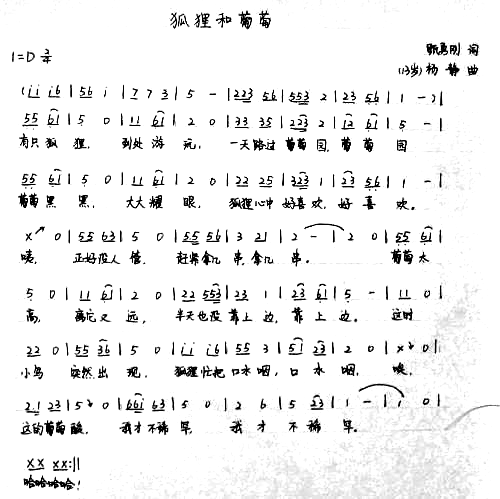 狐狸和葡萄
1=D 2/4
勇刚 词
(13岁) 杨静 曲
(i i i 6 | 5 6 i | 7 7 3 | 5 - | 2 2 3 5 6 | 5 5 3 2 | 2 3 5 6 | 1 - )|
5 5 6 1 | 5 0 | 1 1 6 1 | 2 0 | 3 3 3 5 | 2 2 3 2 | 1 2 6 1 | 5 - |
有只狐狸, 到处游玩, 一天路过葡萄园, 葡萄园
5 5 6 1 | 5 0 | 1 1 6 1 | 2 0 | 2 2 2 5 | 3 2 3 1 | 2 3 5 6 | 1 - |
葡萄黑黑, 大大耀眼, 狐狸心中好喜欢, 好喜欢。
x 0 | 5 5 6 3 | 5 0 | 5 5 5 6 | 3 2 1 | 2 - | 2 0 | 5 5 6 1 |
咦, 正好没人信, 赶紧拿几串, 拿几串。 葡萄太
5 0 | 1 1 6 1 | 2 0 | 2 2 5 5 3 | 2 3 1 | 2 3 6 1 | 5 - | 1 1 0 |
高, 离它又远, 半天也没靠上边, 靠上边。 这时
2 2 0 | 5 5 3 6 | 5 0 | i i i 6 | 5 5 3 | 5 1 2 3 | 2 0 | x 0 |
小鸟 突然出现, 狐狸忙把口水咽, 口水咽, 唉,
2 1 2 3 | 5 0 | 6 6 i 6 3 | 5 0 | 2 6 | 5 3 3 | 1 - | i 0 |
这的葡萄酸, 我才不稀罕, 我才不稀罕。
x x x x :||
哈哈哈哈!